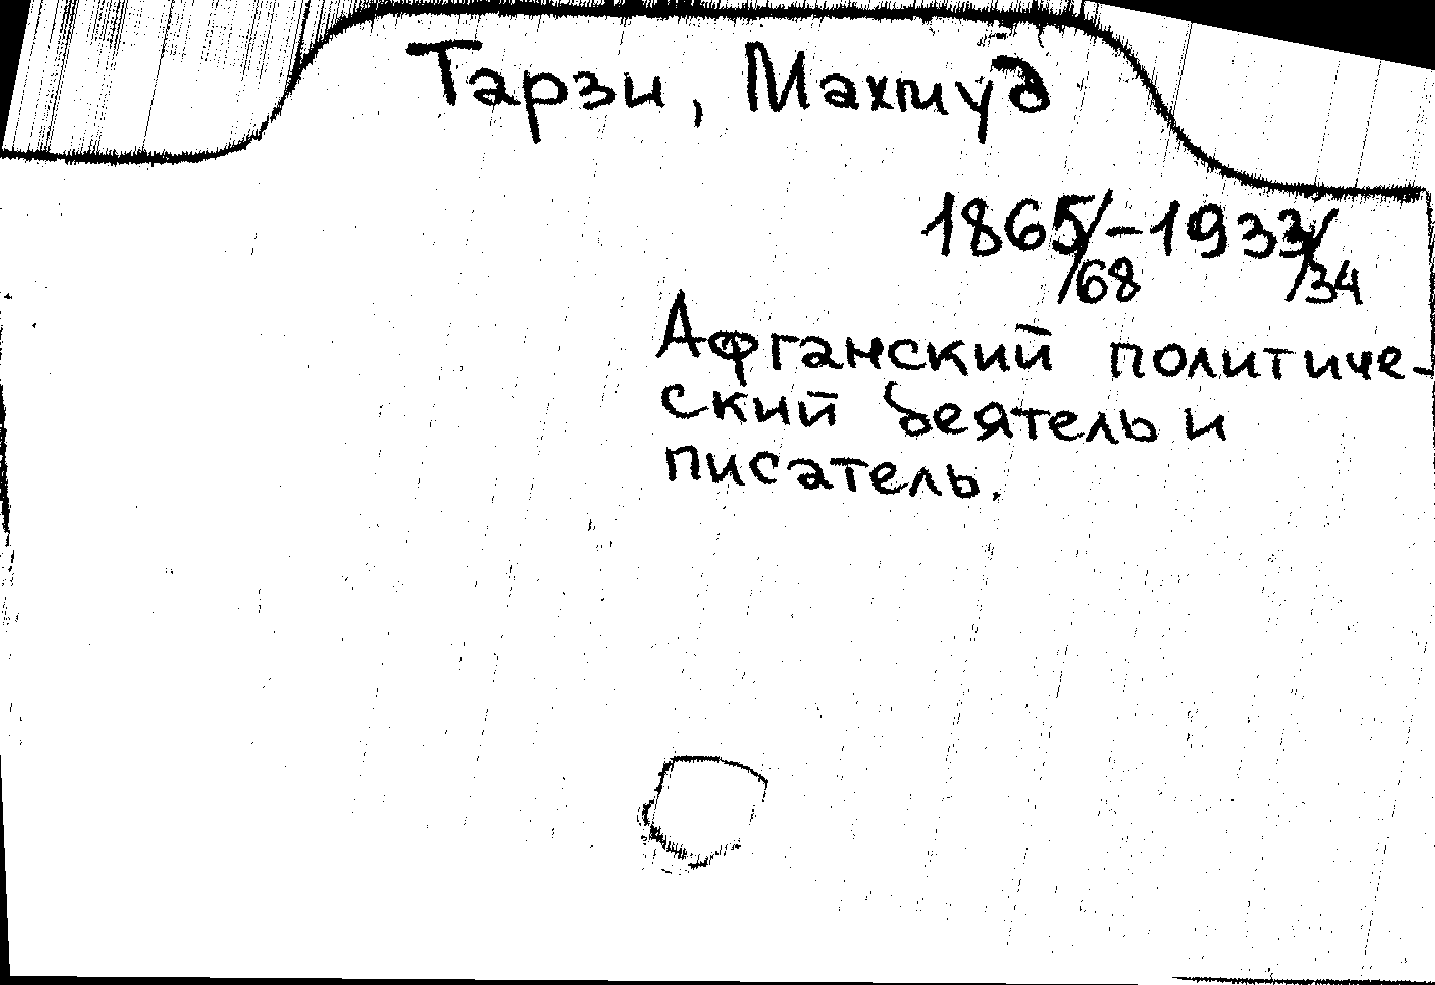 Тарзи, Махмуд
1865/68-1933/34
Афганский политиче-
ский деятель и
писатель.